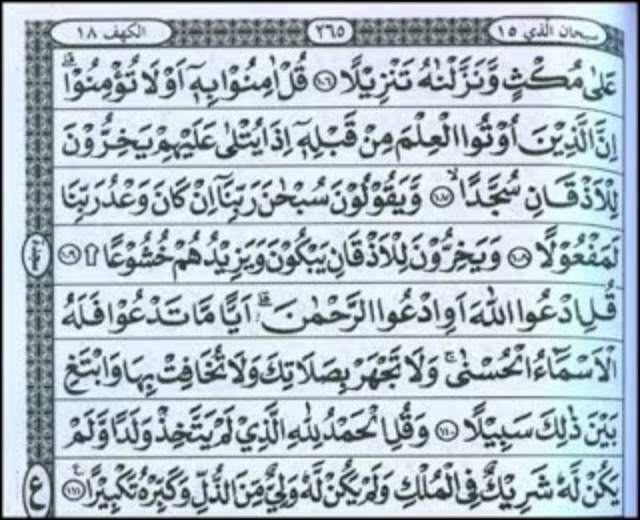 سبحان الذي ١٥ ٢٦٥ الكهف ١٨
عَلٰى مُكْثٍ وَّنَزَّلْنٰهُ تَنْزِيْلًا ۝١٠٦ قُلْ اٰمِنُوْا بِهٖۤ اَوْ لَا تُؤْمِنُوْا ؕ
اِنَّ الَّذِيْنَ اُوْتُوا الْعِلْمَ مِنْ قَبْلِهٖۤ اِذَا يُتْلٰى عَلَيْهِمْ يَخِرُّوْنَ
لِلْاَذْقَانِ سُجَّدًا ۙ۝١٠٧ وَّيَقُوْلُوْنَ سُبْحٰنَ رَبِّنَاۤ اِنْ كَانَ وَعْدُ رَبِّنَا
لَمَفْعُوْلًا ۝١٠٨ وَيَخِرُّوْنَ لِلْاَذْقَانِ يَبْكُوْنَ وَيَزِيْدُهُمْ خُشُوْعًا ۝١٠٩
سجدة
قُلِ ادْعُوا اللّٰهَ اَوِ ادْعُوا الرَّحْمٰنَ ؕ اَيًّا مَّا تَدْعُوْا فَلَهُ
الْاَسْمَآءُ الْحُسْنٰى ۚ وَلَا تَجْهَرْ بِصَلَاتِكَ وَلَا تُخَافِتْ بِهَا وَابْتَغِ
بَيْنَ ذٰلِكَ سَبِيْلًا ۝١١٠ وَقُلِ الْحَمْدُ لِلّٰهِ الَّذِيْ لَمْ يَتَّخِذْ وَلَدًا وَّلَمْ
يَكُنْ لَّهٗ شَرِيْكٌ فِي الْمُلْكِ وَلَمْ يَكُنْ لَّهٗ وَلِيٌّ مِّنَ الذُّلِّ وَكَبِّرْهُ تَكْبِيْرًا ۝١١١
ع